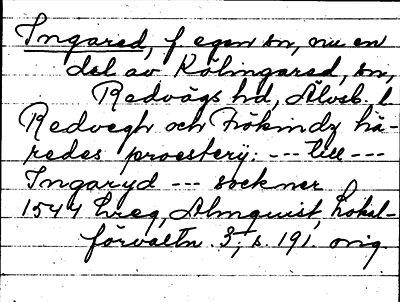 Ingared, f. egen sn, nu en
del av Kölingared, sn,
Redvägs hd, Älvsb. l.
Redvegh och Frökindz hä-
redes proestery: --- till ---
Ingaryd --- sockner
1544 Greg, Almquist, Lokal-
förvaltn. 3, s. 191. orig.